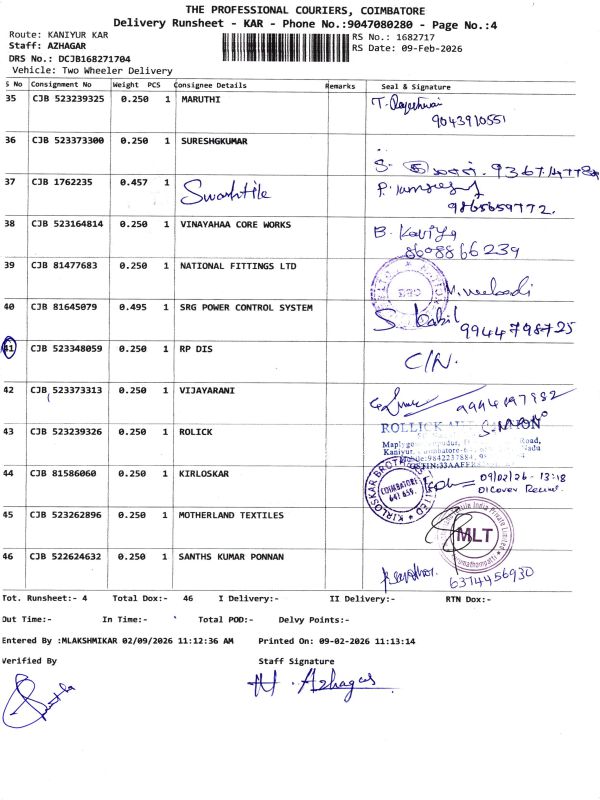 THE PROFESSIONAL COURIERS, COIMBATORE
Delivery Runsheet - KAR - Phone No.:9047080280 - Page No.:4
Route: KANIYUR KAR
RS No.: 1682717
Staff: AZHAGAR
RS Date: 09-Feb-2026
DRS No.: DCJB168271704
Vehicle: Two Wheeler Delivery
S No Consignment No Weight PCS Consignee Details Remarks Seal & Signature
35 CJB 523239325 0.250 1 MARUTHI
9043910551
36 CJB 523373300 0.250 1 SURESHGKUMAR
37 CJB 1762235 0.457 1
9865659772.
38 CJB 523164814 0.250 1 VINAYAHAA CORE WORKS B. Kaviya
8608866239
39 CJB 81477683 0.250 1 NATIONAL FITTINGS LTD
40 CJB 81645079 0.495 1 SRG POWER CONTROL SYSTEM S. Kabil
9944798725
41 CJB 523348059 0.250 1 RP DIS C/N.
42 CJB 523373313 0.250 1 VIJAYARANI
43 CJB 523239326 0.250 1 ROLICK ROLLICK
44 CJB 81586060 0.250 1 KIRLOSKAR KIRLOSKAR BROTHERS LIMITED COIMBATORE 641 659. 09/02/26 - 13:18
45 CJB 523262896 0.250 1 MOTHERLAND TEXTILES MLT
46 CJB 522624632 0.250 1 SANTHS KUMAR PONNAN 6374456930
Tot. Runsheet:- 4 Total Dox:- 46 I Delivery:- II Delivery:- RTN Dox:-
Out Time:- In Time:- Total POD:- Delvy Points:-
Entered By :MLAKSHMIKAR 02/09/2026 11:12:36 AM Printed On: 09-02-2026 11:13:14
Verified By Staff Signature
N. Azhagar